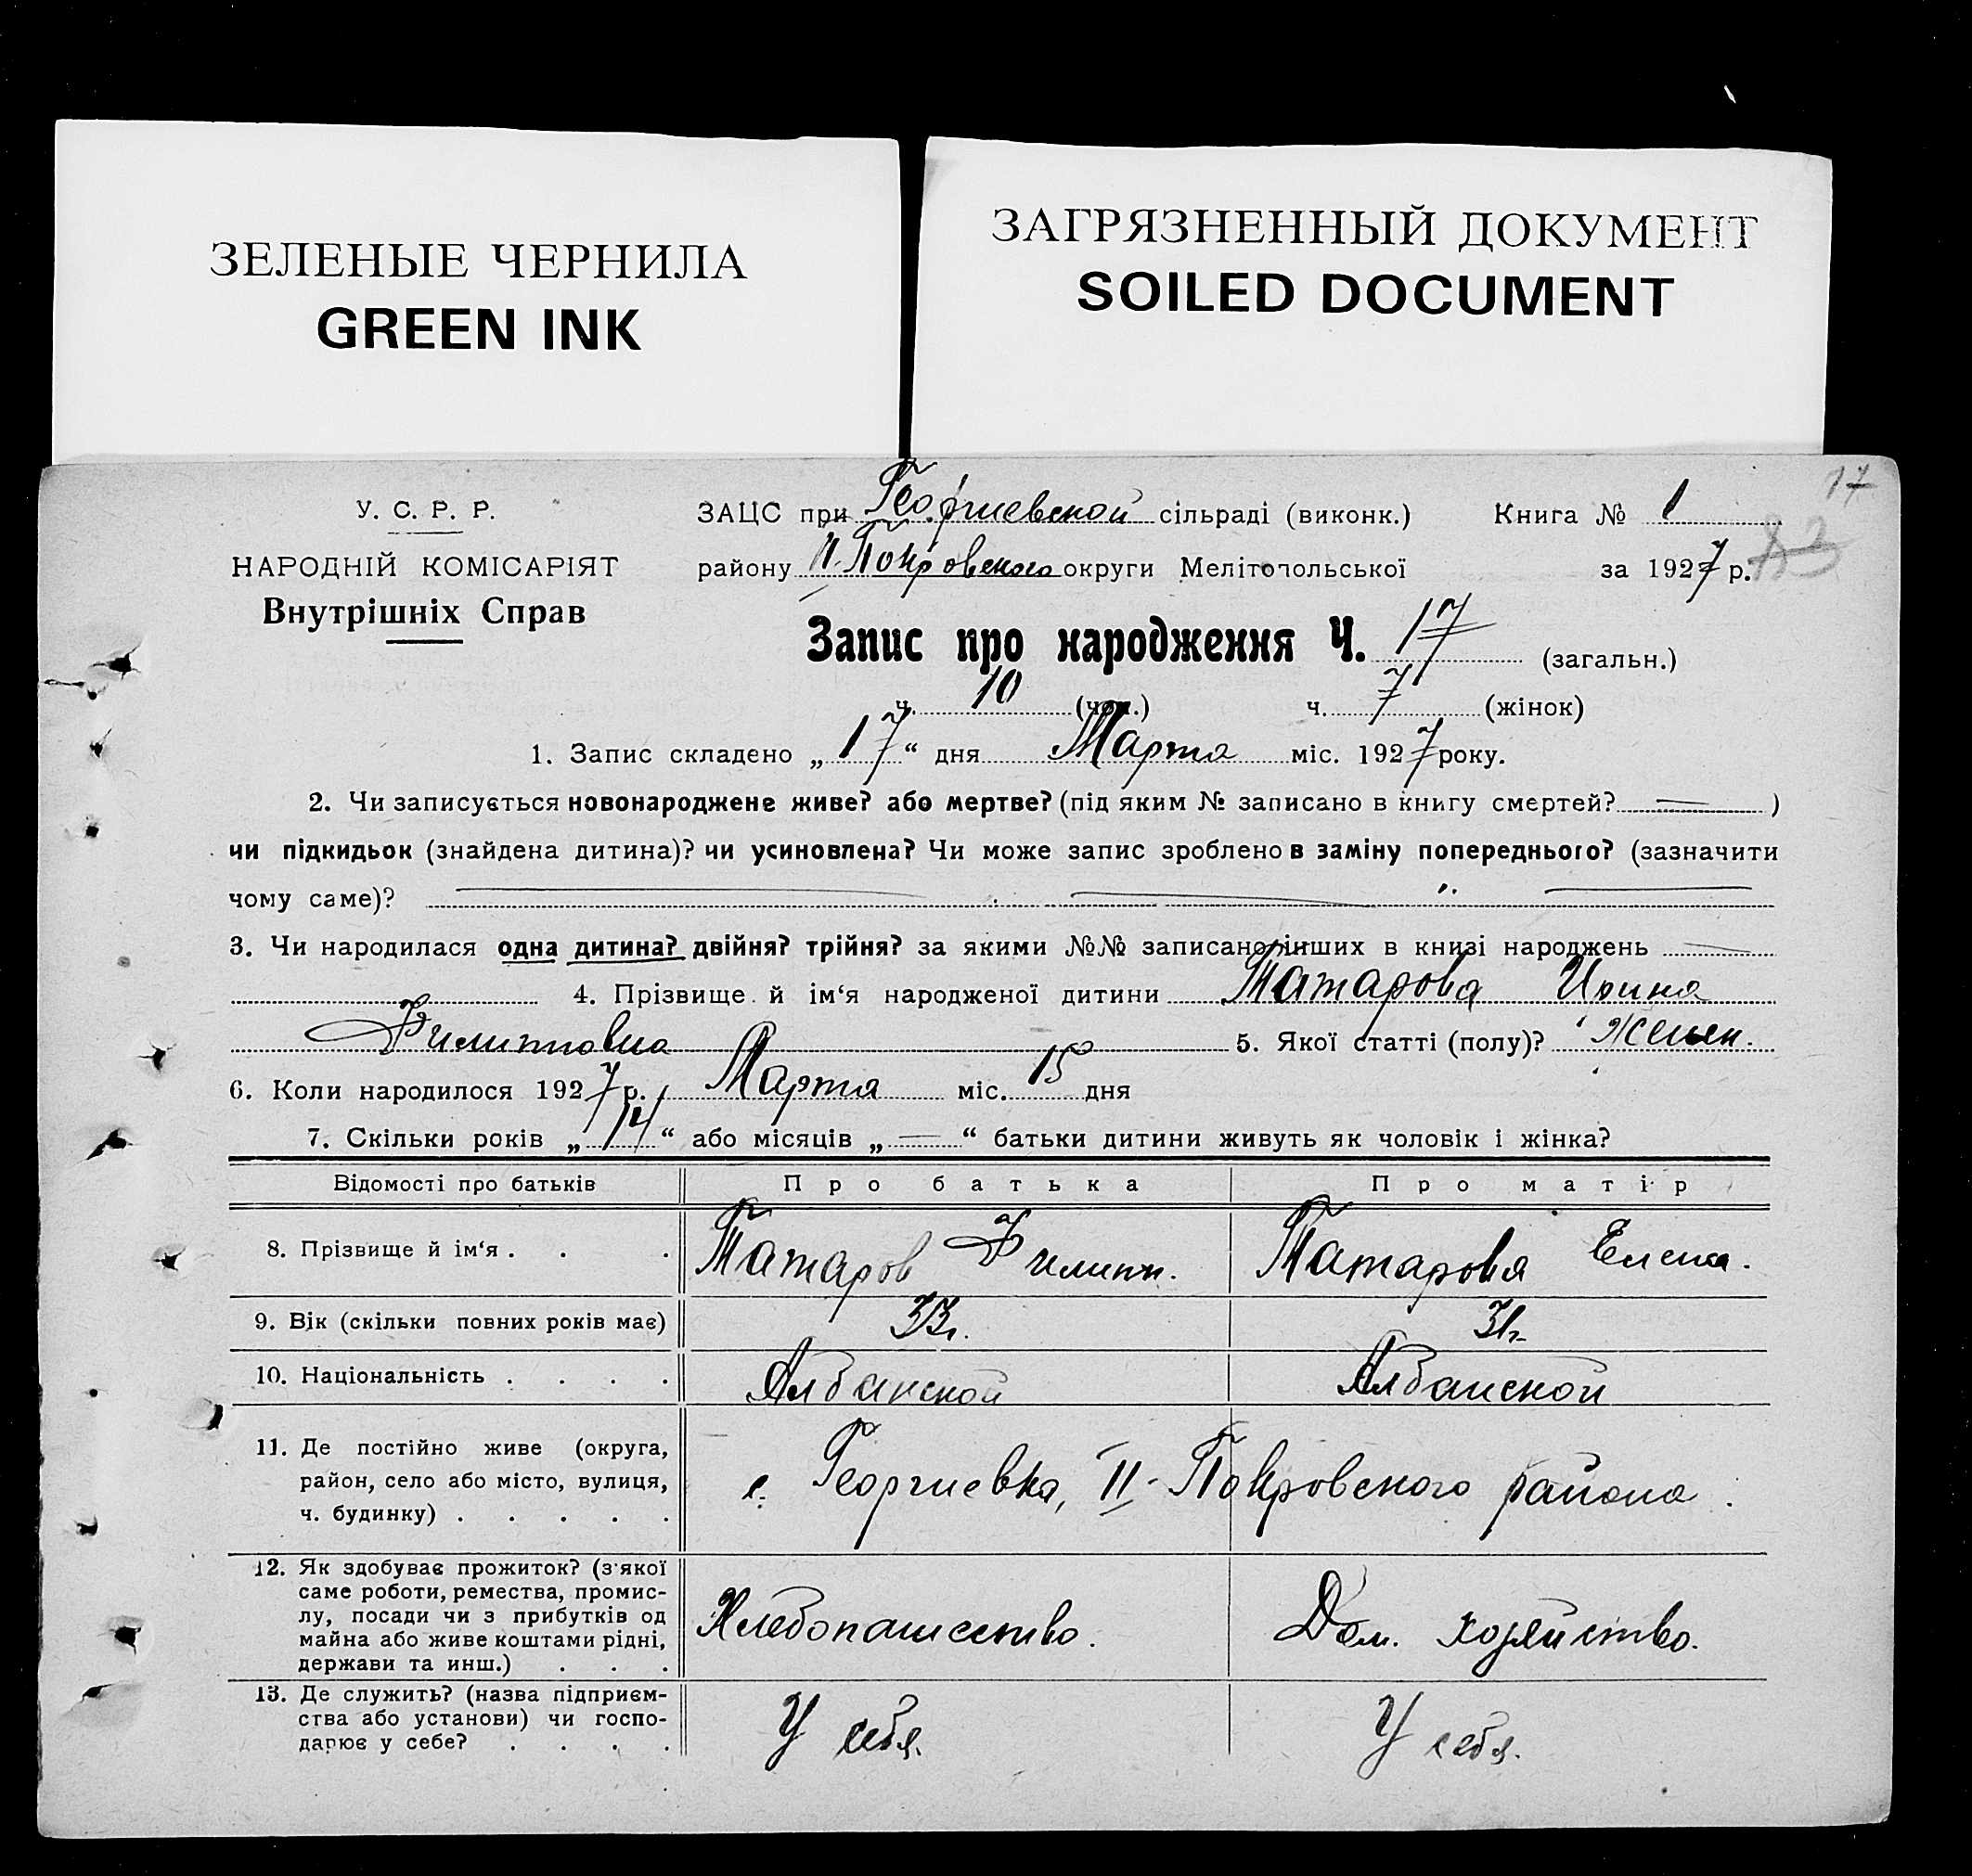 ЗЕЛЕНЫЕ ЧЕРНИЛА
GREEN INK
ЗАГРЯЗНЕННЫЙ ДОКУМЕНТ
SOILED DOCUMENT
17
83
У. С. Р. Р.
НАРОДНІЙ КОМІСАРІЯТ
Внутрішніх Справ
ЗАЦС при Георгиевской сільраді (виконк.) Книга № 1
району II-Покровского округи Мелітопольської за 1927 р.
Запис про народження Ч. 17 (загальн.)
ч. 10 (чол.) ч. 7 (жінок)
1. Запис складено „17“ дня Марта міс. 1927 року.
2. Чи записується новонароджене живе? або мертве? (під яким № записано в книгу смертей? — )
чи підкидьок (знайдена дитина)? чи усиновлена? Чи може запис зроблено в заміну попереднього? (зазначити
чому саме)? —
3. Чи народилася одна дитина? двійня? трійня? за якими №№ записано інших в книзі народжень —
4. Прізвище й ім‘я народженої дитини Татарова Ирина
Филипповна 5. Якої статті (полу)? Женск.
6. Коли народилося 1927 р. Марта міс. 15 дня
7. Скільки років „14“ або місяців „—“ батьки дитини живуть як чоловік і жінка?
Відомості про батьків Про батька Про матір
8. Прізвище й ім‘я . . . Татаров Филипп. Татарова Елена.
9. Вік (скільки повних років має) 33г. 31г.
10. Національність . . . . Албанской Албанской
11. Де постійно живе (округа,
район, село або місто, вулиця,
ч. будинку) . . . . .
с. Георгиевка, II-Покровского района.
12. Як здобуває прожиток? (з‘якої
саме роботи, ремества, промис-
лу, посади чи з прибутків од
майна або живе коштами рідні,
держави та инш.) . . .
Хлебопашество. Дом. хозяйство.
13. Де служить? (назва підприєм-
ства або установи) чи госпо-
дарює у себе? . . . .
У себя. У себя.